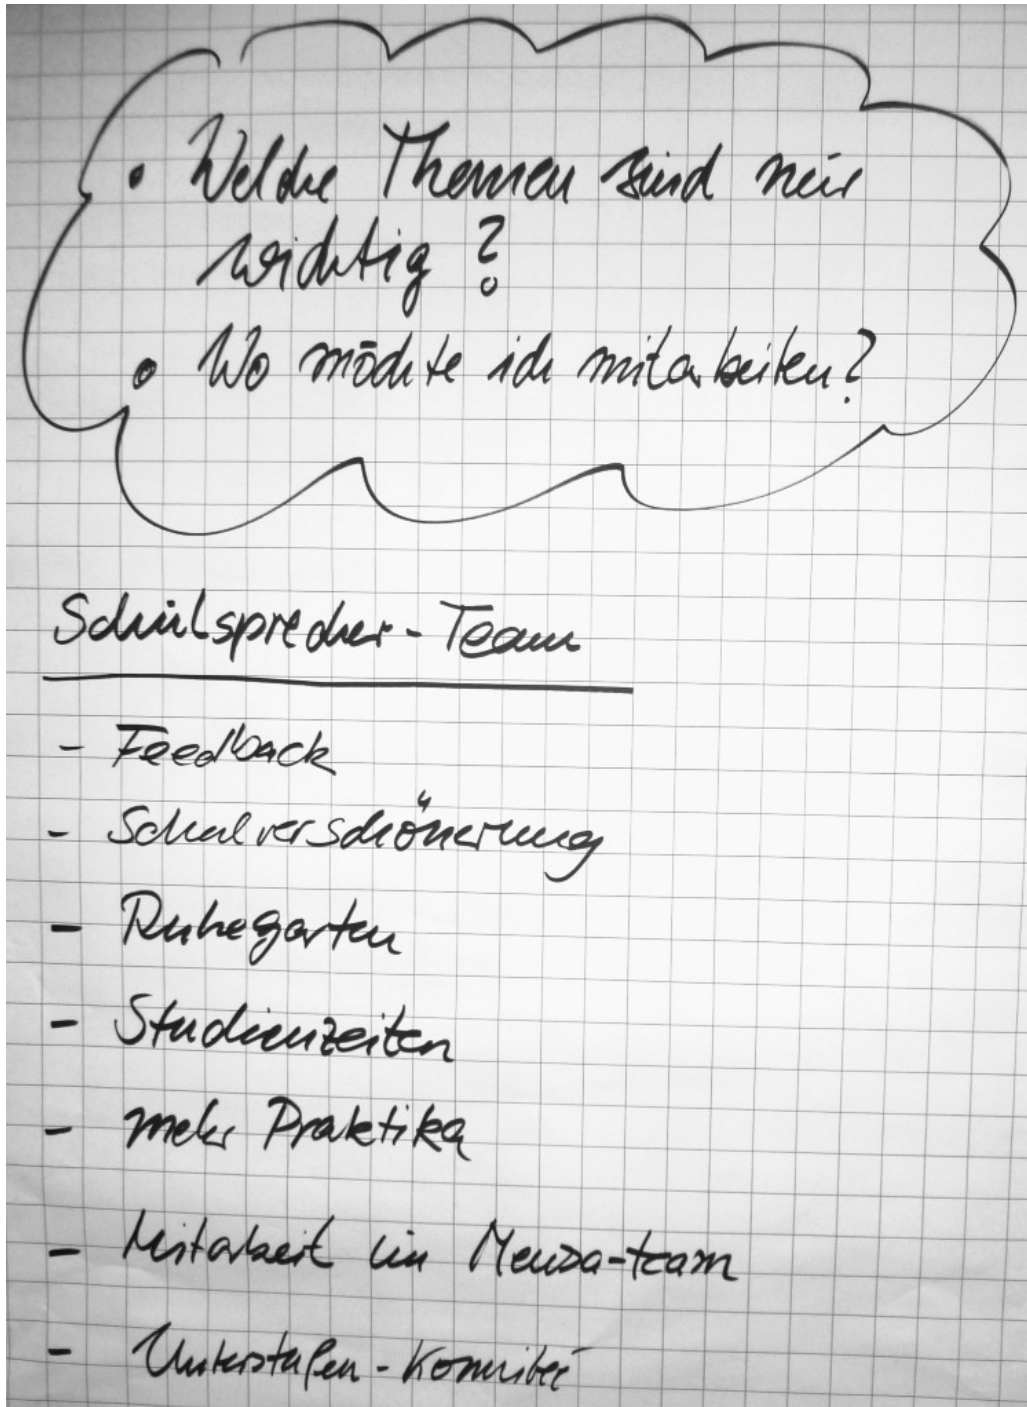 • Welche Themen sind mir
wichtig?
• Wo möchte ich mitarbeiten?
Schulsprecher-Team
- Feedback
- Schulverschönerung
- Ruhegarten
- Studienzeiten
- mehr Praktika
- Mitarbeit im Mensa-team
- Unterstufen-Komitee